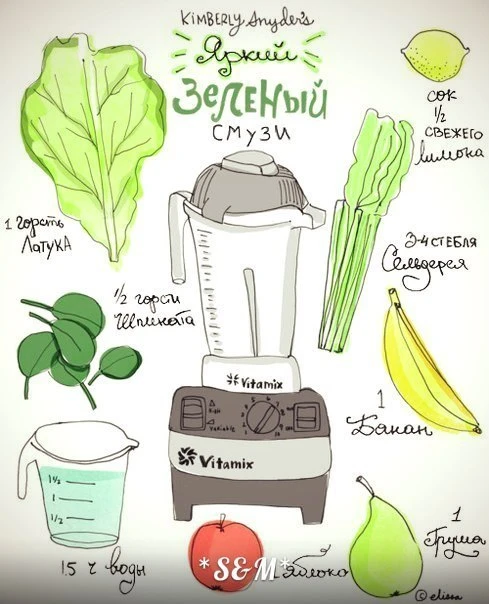 KIMBERLY Snyder's
Яркий
ЗЕЛЕНЫЙ
СМУЗИ
сок
1/2
СВЕЖЕГО
лимона
1 горсть
ЛАТУКА
3-4 СТЕБЛЯ
Сельдерея
1/2 горсти
Шпината
Vitamix
VARIABLE
Vitamix
1
Банан
1 1/2
1
1/2
1.5 ч воды
*S&M*
Яблоко
1
Груша
© elissa